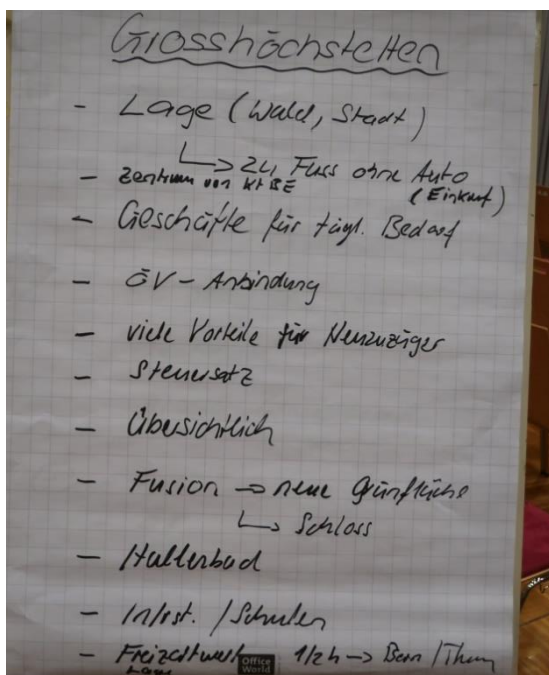 Grosshöchstetten
- Lage (Wald, Stadt)
↳ zu Fuss ohne Auto
(Einkauf)
- Zentrum von Kt BE
- Geschäfte für tägl. Bedarf
- ÖV-Anbindung
- viele Vorteile für Neuzuzüger
- Steuersatz
- Übersichtlich
- Fusion → neue Grünfläche
↳ Schloss
- Hallenbad
- Infrst. / Schulen
- Freizeitwert 1/2 h → Bern / Thun
Office
World